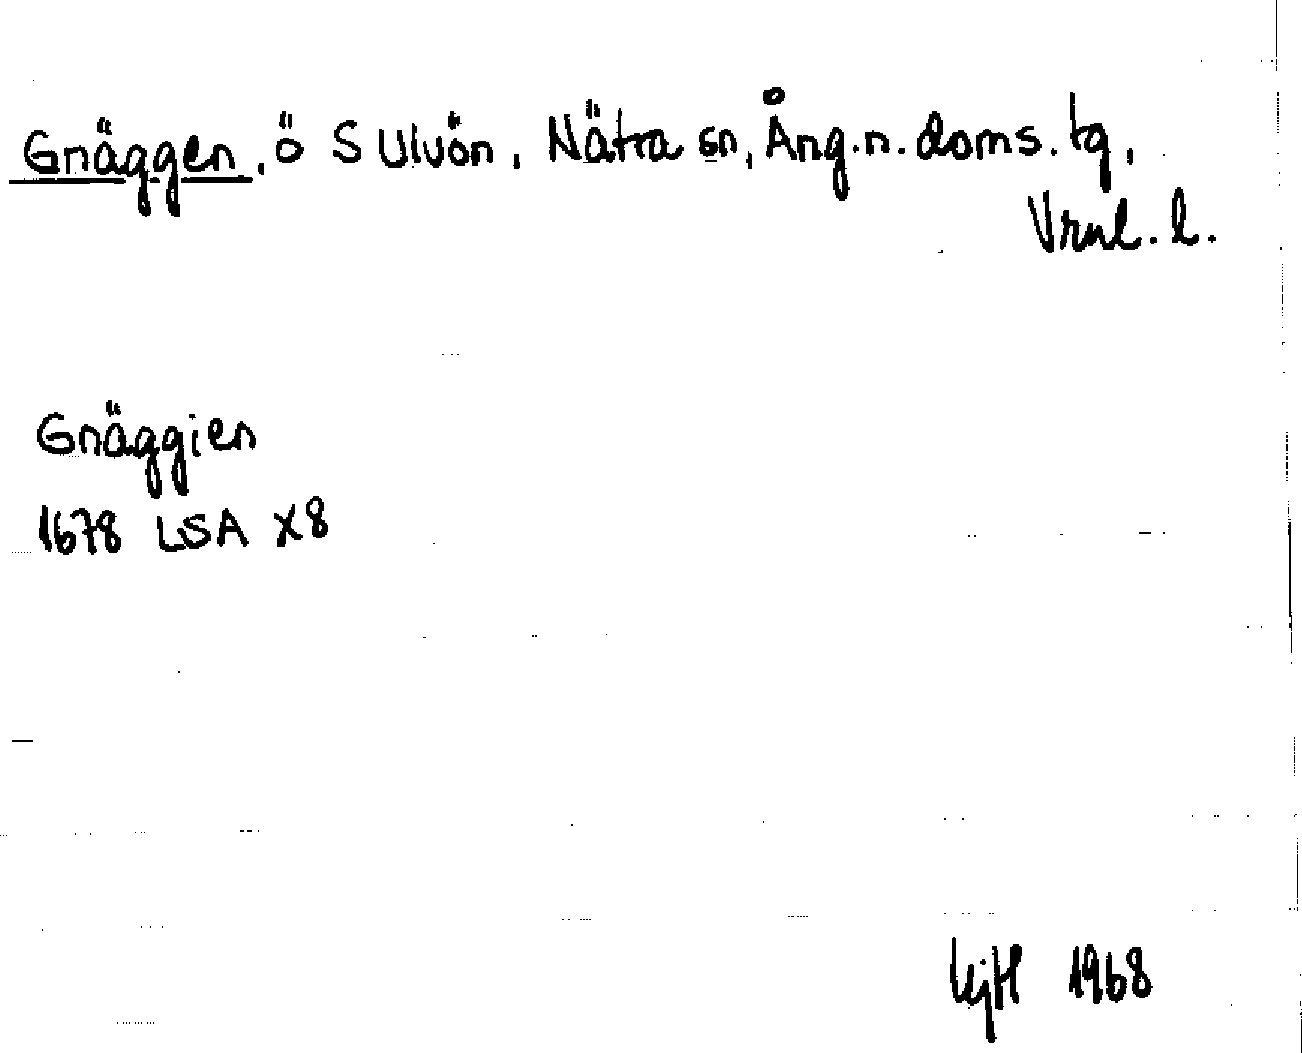 Gnäggen, ö S Ulvön, Nätra sn, Ång.n. doms. tg,
Vrnl. l.
Gnäggien
1678 LSA X8
1968